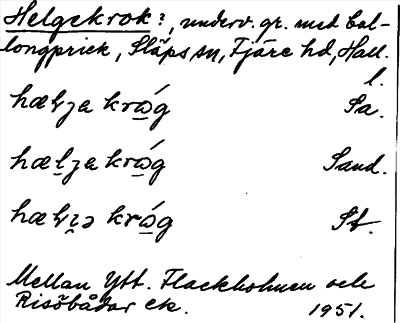 Helgekrok?, underv. gr. med bal-
longprick, Släps sn, Fjäre hd, Hall.
l.
hæꞎʒa krώ̲g Sa.
hæl̲ʒa krώ̲g Sand.
krώ̲g St.
Mellan Ytt. Flackholmen och
Risöbådar ek. 1951.